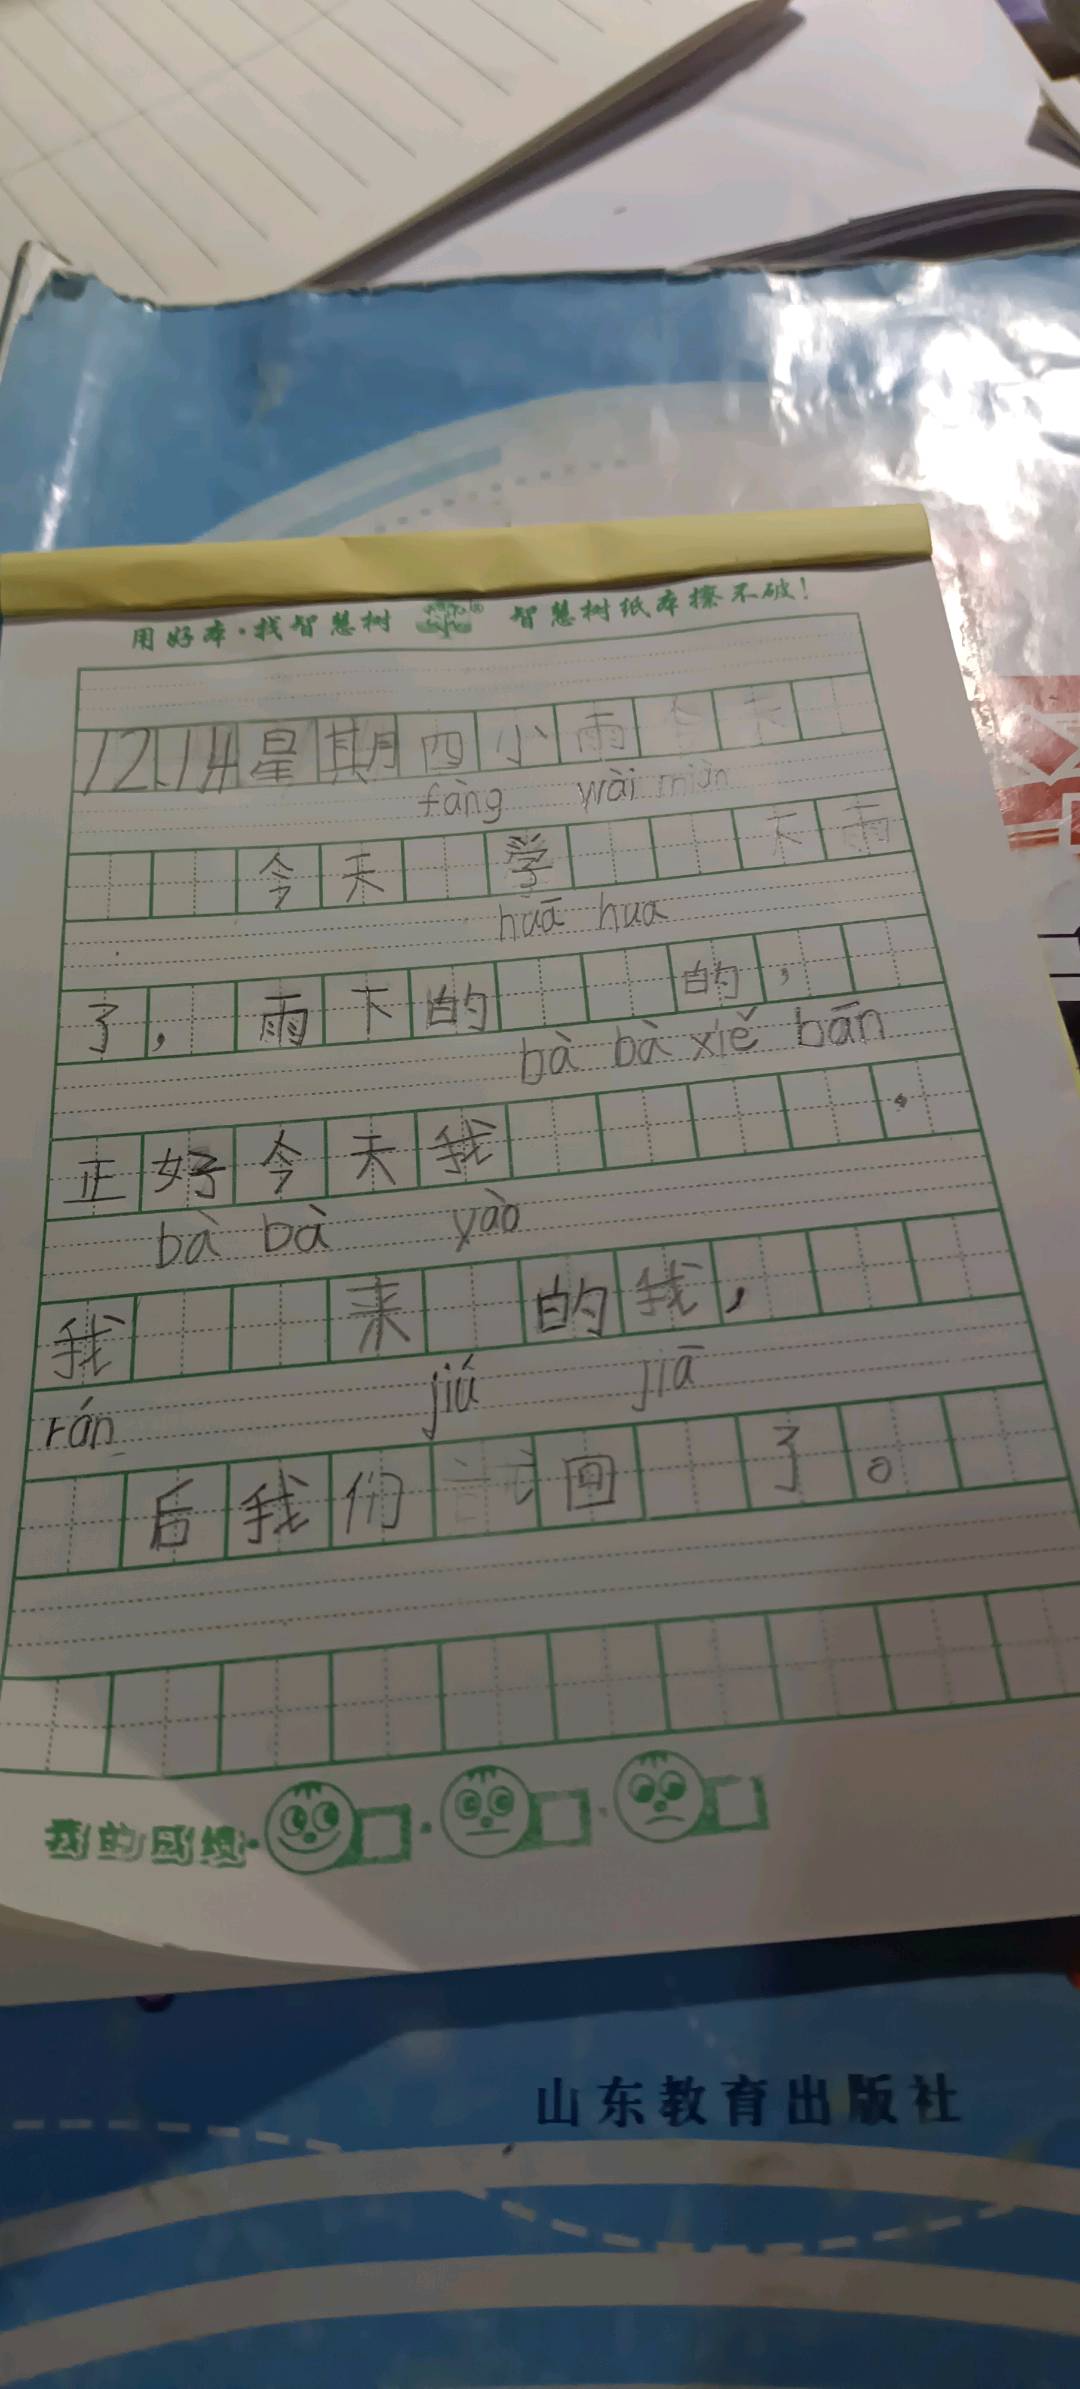 用好本·找智慧树 智慧树纸本擦不破!
12.14星期四小雨今天
fàng wài miàn
今天 学 下雨
huā hua
了, 雨下的 的,
bà bà xiě bān
正好今天我 .
bà bà yào
我 来 的我,
rán jiú jiā
后我们 回 了。
我的成绩·
山东教育出版社